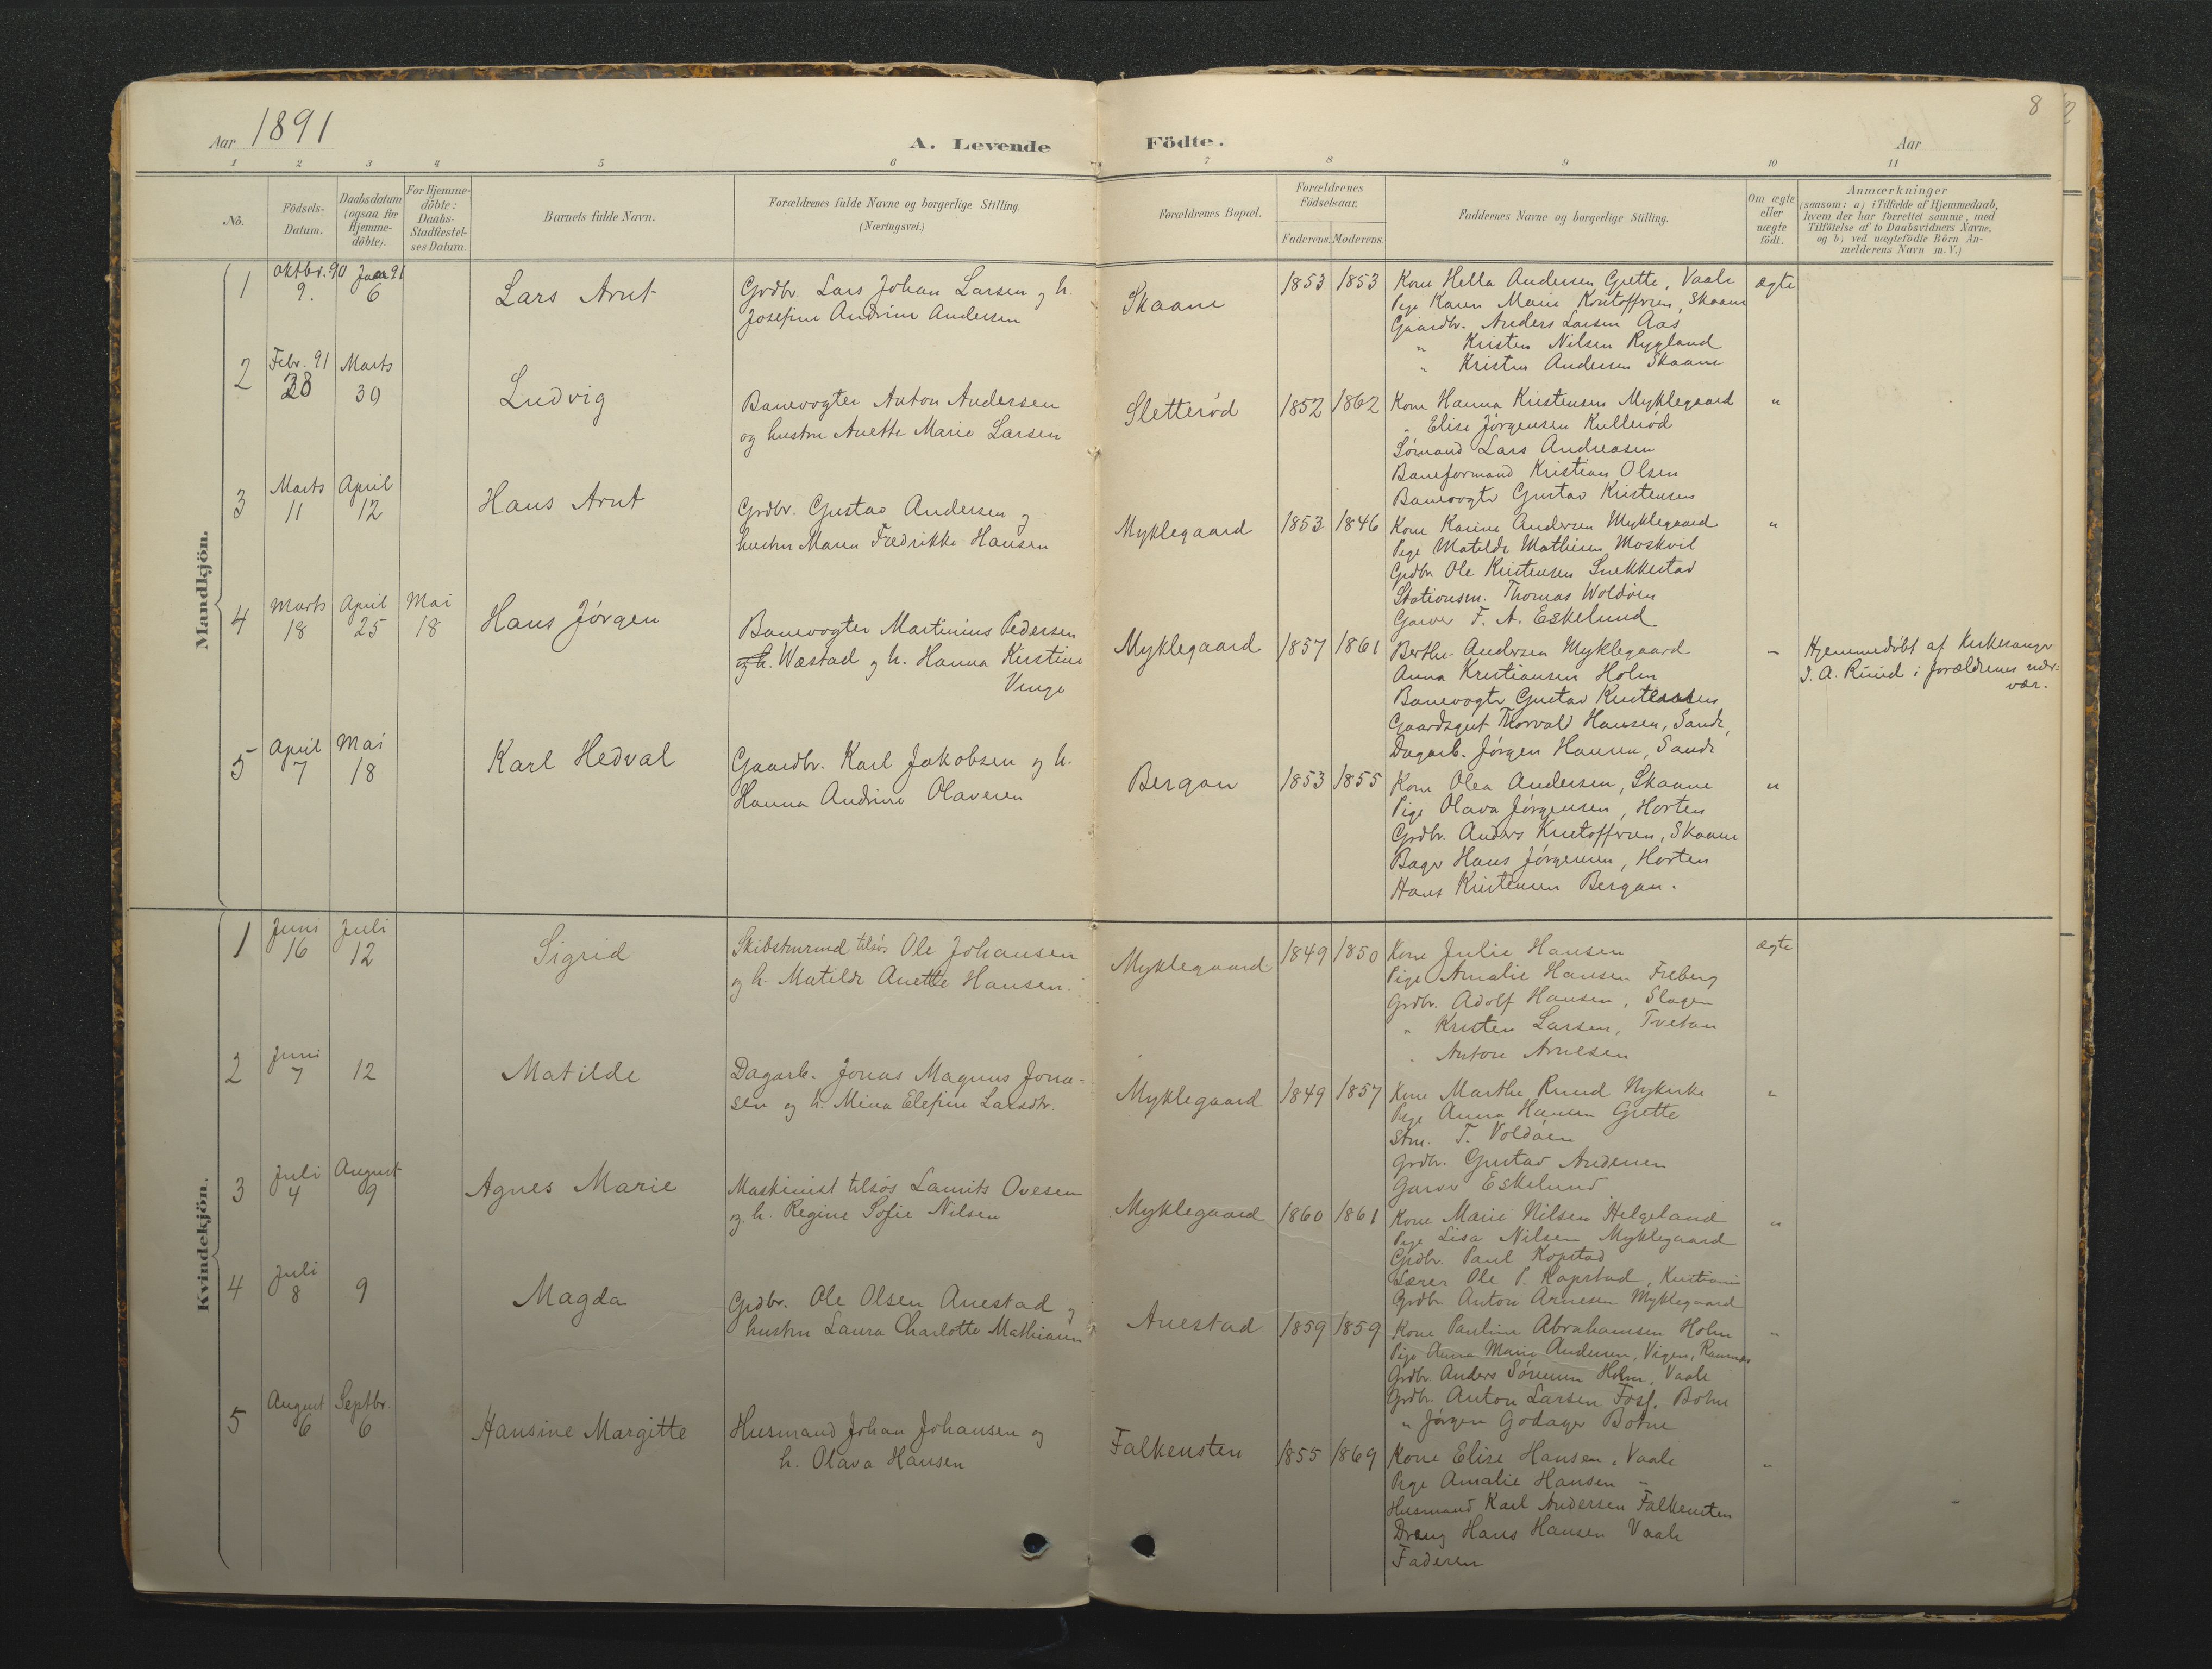 Aar 1891
A. Levende Födte.
Aar
8
1 2 3 4 5 6 7 8 9 10 11
No.
Födsels-Datum.
Daabsdatum (ogsaa for Hjemme-döbte).
For Hjemme-döbte: Daabs-Stadfæstel-ses Datum.
Barnets fulde Navn.
Forældrenes fulde Navne og borgerlige Stilling.
(Næringsvei.)
Forældrenes Bopæl.
Forældrenes Födselsaar.
Faderens. Moderens.
Faddernes Navne og borgerlige Stilling.
Om ægte eller uægte födt.
Anmærkninger
(saasom: a) i Tilfælde af Hjemmedaab,
hvem der har forrettet samme, med
Tilföielse af to Daabsvidners Navne,
og b) ved uægtefödte Börn An-
melderens Navn m. V.)
Mandkjön.
1 Oktbr. 90 9. Jan 91 6 Lars Arnt
Grdbr. Lars Johan Larsen og h.
Josefine Andrine Andersen
Skaane 1853 1853
Kone Hella Andersen Grette, Vaale
Pige Karen Marie Kristoffersen, Skaane
Gaardbr. Anders Larsen Aas
" Kristen Nilsen Rygland
" Kristen Andersen Skaane
ægte
2 Febr. 91 28 Marts 30 Ludvig
Banevogter Anton Andersen
og hustru Anette Marie Larsen
Sletterød 1852 1862
Kone Hanna Kristensen Myklegaard
" Elise Jørgensen Kullerød
Sømand Lars Andreasen
Baneformand Kristian Olsen
Banevogter Gustav Kristensen
"
3 Marts 11 April 12 Hans Arnt
Grdbr. Gustav Andersen og
hustru Maren Fredrikke Hansen
Myklegaard 1853 1846
Kone Karine Andersen Myklegaard
Pige Matilde Mathisen Moskvil
Grdbr. Ole Kristensen Snekkestad
Stationsm. Thomas Woldøen
Garver F. A. Eskelund
"
4 Marts 18 April 25 Mai 18 Hans Jørgen
Banevogter Martinius Pedersen
og h. Wæstad og h. Hanna Kirstine
Venge
Myklegaard 1857 1861
Berthe Andersen Myklegaard
Anna Kristiansen Holm
Banevogter Gustav Kristensen
Gaardsgut Thorvald Hansen, Sande,
Dagarb. Jørgen Hansen, Sande
–
Hjemmedøbt af Kirkesanger
J. A. Ruud i forældrenes nær-
vær.
5 April 7 Mai 18 Karl Hedval
Gaardbr. Karl Jakobsen og h.
Hanna Andrine Olavesen
Bergan 1853 1855
Kone Olea Andersen, Skaane
Pige Olava Jørgensen, Horten
Grdbr. Anders Kristoffersen, Skaane
Bager Hans Jørgensen, Horten
Hans Kristensen Bergan.
"
Kvindekjön.
1 Juni 16 Juli 12 Sigrid
Skibstømmd tilsøs Ole Johansen
og h. Matilde Anette Hansen.
Myklegaard 1849 1850
Kone Julie Hansen
Pige Amalie Hansen Freberg
Grdbr. Adolf Hansen, Slagen
" Kristen Larsen, Tvetan
" Anton Arnesen
ægte
2 Juni 7 12 Matilde
Dagarb. Jonas Magnus Jona-
sen og h. Mina Elefine Larsdtr.
Myklegaard 1849 1857
Kone Marthe Ruud Nykirke
Pige Anna Hansen Grette
Stm. T. Voldøen
Grdbr. Gustav Andersen
Garver Eskelund
"
3 Juli 4 August 9 Agnes Marie
Maskinist tilsøs Laurits Ovesen
og h. Regine Sofie Nilsen
Myklegaard 1860 1861
Kone Marie Nilsen Helgeland
Pige Lisa Nilsen Myklegaard
Grdbr. Paul Kopstad
Lærer Ole P. Kopstad, Kristiania
Grdbr Anton Arnesen Myklegaard
"
4 Juli 8 9 Magda
Grdbr. Ole Olsen Anestad og
hustru Laura Charlotte Mathisen
Anestad 1859 1859
Kone Pauline Abrahamsen Holm
Pige Anna Marie Andersen, Vigen, Ramnæs
Grdbr. Anders Sørensen Holm, Vaale
Grdbr. Anton Larsen Foss, Botne
" Jørgen Godager Botne
"
5 August 6 Septbr. 6 Hansine Margitte
Husmand Johan Johansen og
h. Olava Hansen
Falkensten 1855 1869
Kone Elise Hansen, Vaale
Pige Amalie Hansen "
Husmand Karl Andersen Falkensten
Dreng Hans Hansen Vaale
Faderen
"